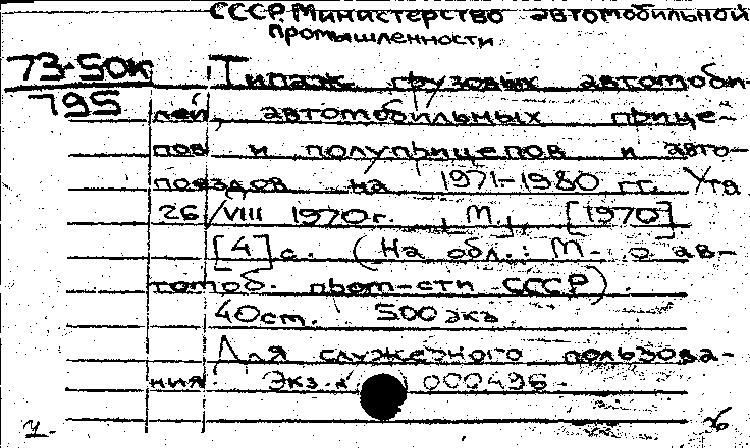 СССР. Министерство автомобильной
промышленности
73-50к
795
Типаж грузовых автомоби-
лей, автомобильных прице-
пов и полуприцепов и авто-
поездов на 1971-1980 гг. Утв.
26/VIII 1970г. М., [1970]
[4] с. (На обл.: М. о ав-
тотоб. пром-сти СССР).
40ст. 500 экз
Для служебного пользова-
ния. Экз. 000496.